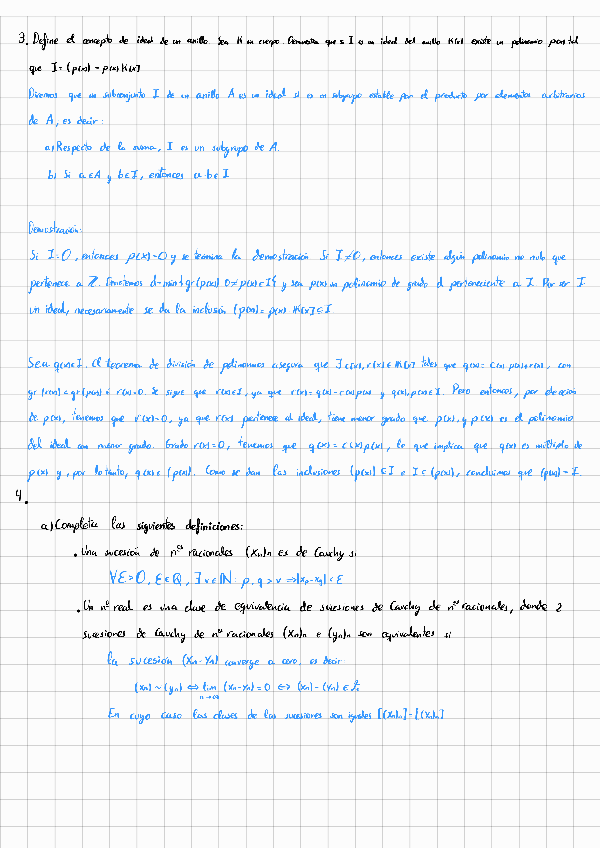 3. Define el concepto de ideal de un anillo. Sea K un cuerpo. Demuestra que si I es un ideal del anillo K[x] existe un polinomio p(x) tal
que I = (p(x)) = p(x) K[x]
Diremos que un subconjunto I de un anillo A es un ideal si es un subgrupo estable por el producto por elementos arbitrarios
de A, es decir:
a) Respecto de la suma, I es un subgrupo de A.
b) Si a ∈ A y b ∈ I, entonces a·b ∈ I
Demostración:
Si I = 0, entonces p(x) = 0 y se termina la demostración. Si I ≠ 0, entonces existe algún polinomio no nulo que
pertenece a I. Tomemos d = min{gr(p(x)) : 0 ≠ p(x) ∈ I} y sea p(x) un polinomio de grado d perteneciente a I. Por ser I
un ideal, necesariamente se da la inclusión (p(x)) = p(x) K[x] ⊆ I
Sea q(x) ∈ I. El teorema de división de polinomios asegura que ∃ c(x), r(x) ∈ K[x] tales que q(x) = c(x) p(x) + r(x), con
gr(r(x)) < gr(p(x)) ó r(x) = 0. Se sigue que r(x) ∈ I, ya que r(x) = q(x) - c(x) p(x) y q(x), p(x) ∈ I. Pero entonces, por elección
de p(x), tenemos que r(x) = 0, ya que r(x) pertenece al ideal, tiene menor grado que p(x), y p(x) es el polinomio
del ideal con menor grado. Grado r(x) = 0, tenemos que q(x) = c(x) p(x), lo que implica que q(x) es múltiplo de
p(x) y, por lo tanto, q(x) ∈ (p(x)). Como se dan las inclusiones (p(x)) ⊂ I e I ⊂ (p(x)), concluimos que (p(x)) = I.
4.
a) Completa las siguientes definiciones:
• Una sucesión de nºs racionales (xn)n es de Cauchy si
∀ε > 0, ε ∈ Q, ∃ ν ∈ ℕ : p, q > ν ⇒ |xp - xq| < ε
• Un nº real es una clase de equivalencia de sucesiones de Cauchy de nºs racionales, donde 2
sucesiones de Cauchy de nºs racionales (xn)n e (yn)n son equivalentes si
la sucesión (xn - yn) converge a cero, es decir:
(xn) ~ (yn) ⇔ lim n→∞ (xn - yn) = 0 ⇔ (xn) - (yn) ∈
En cuyo caso las clases de las sucesiones son iguales [(xn)n] = [(yn)n]